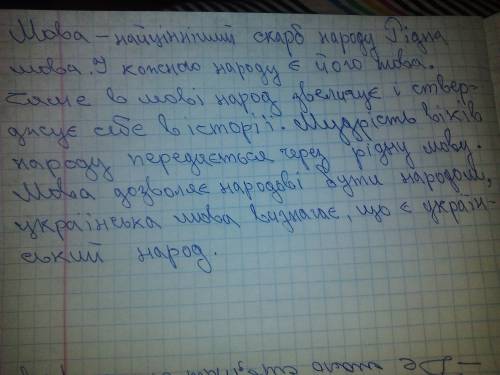 Мова – найцінніший скарб народу Рідна
мова. У кожного народу є його мова.
Саме в мові народ звеличує і ствер-
джує себе в історії. Мудрість віків
народу передається через рідну мову.
Мова дозволяє народові бути народом,
українська мова визнагає, що є україн-
ський народ.